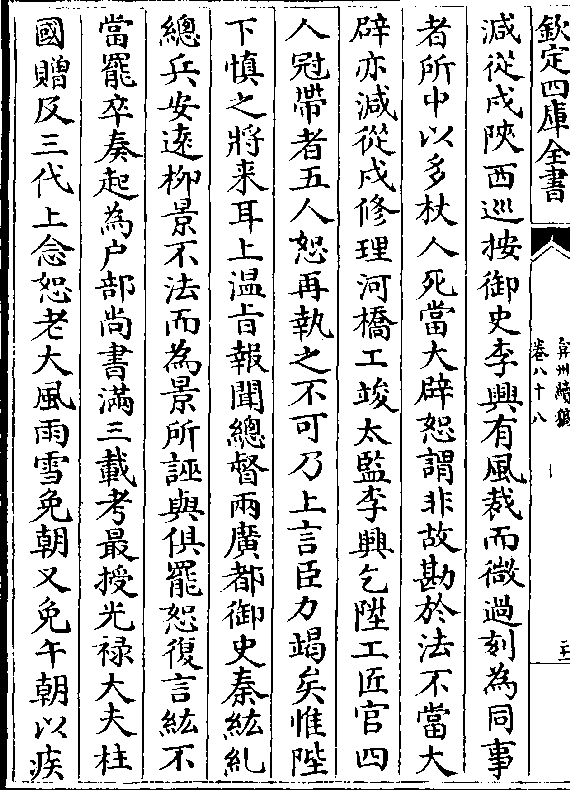 欽定四庫全書
弇州續稿
卷八十八
減從戍陝西巡按御史李興有風裁而微過刻為同事
者所中以多杖人死當大辟恕謂非故勘於法不當大
辟亦減從戍修理河橋工竣太監李興乞陞工匠官四
人冠帶者五人恕再執之不可乃上言臣力竭矣惟陛
下慎之將来耳上温旨報聞總督兩廣都御史秦紘糺
總兵安逺柳景不法而為景所誣與俱罷恕復言紘不
當罷卒奏起為户部尚書滿三載考最授光禄大夫柱
國贈及三代上念恕老大風雨雪免朝又免午朝以疾